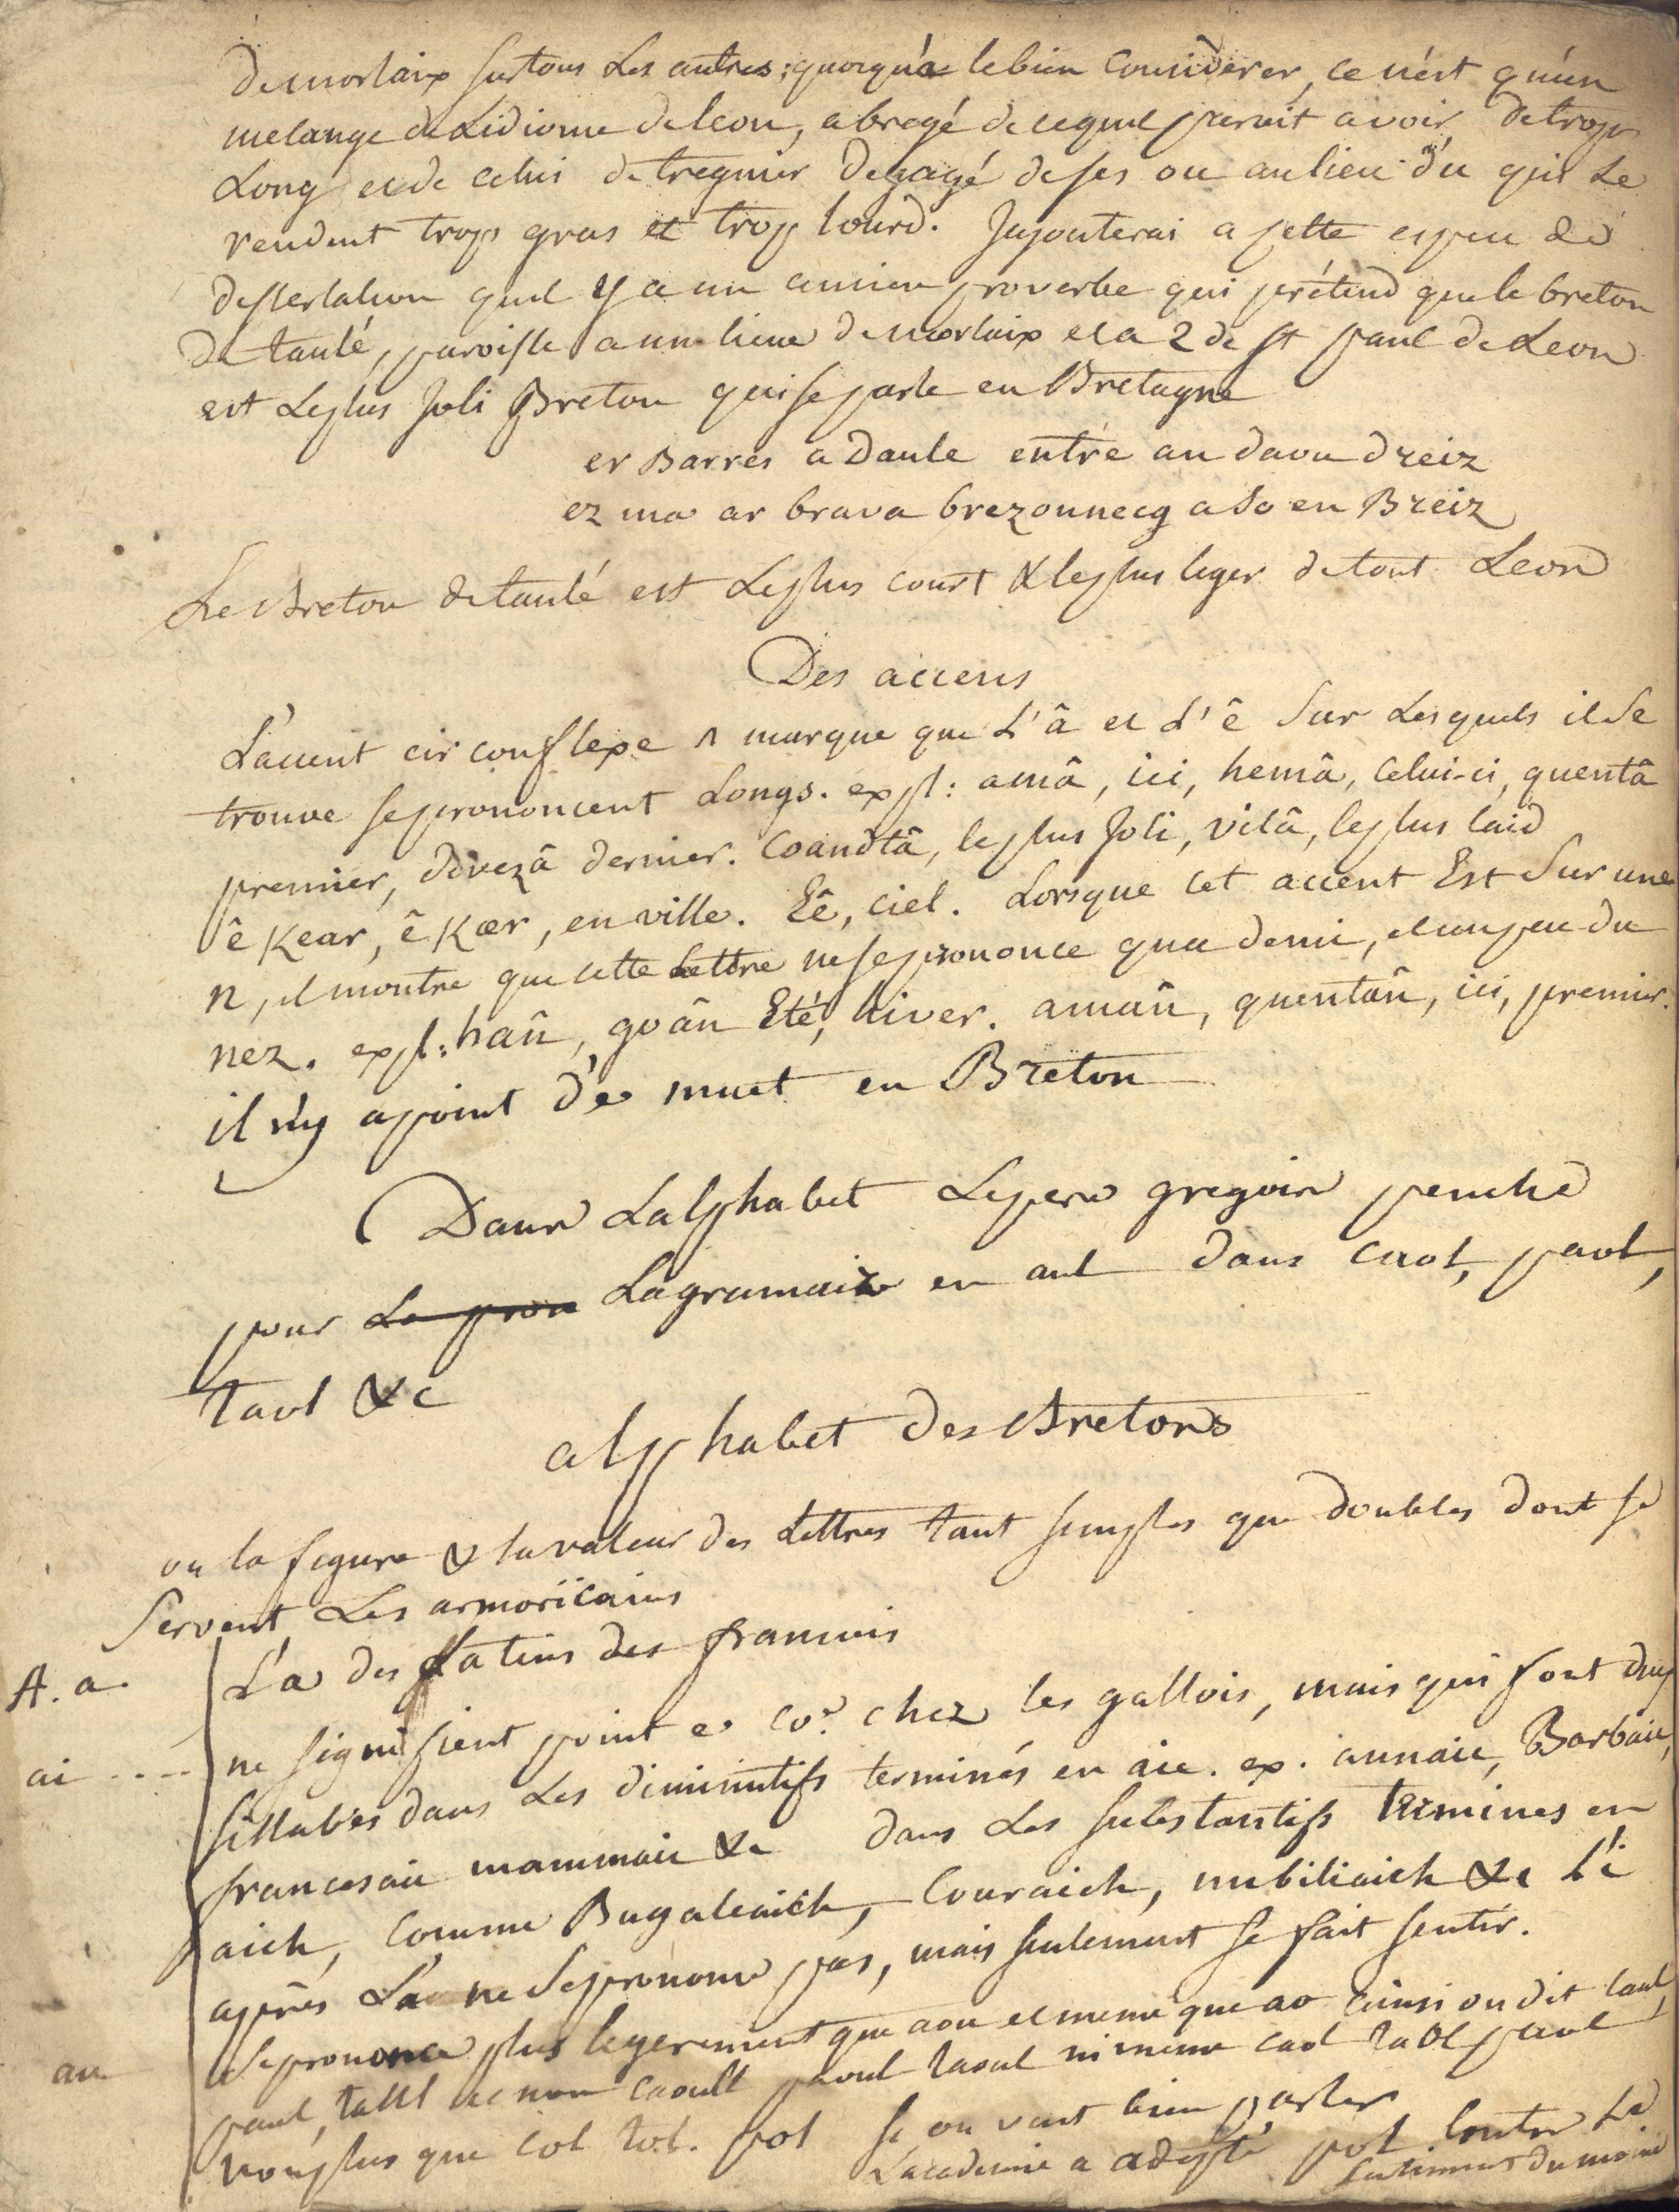 de morlaix sur tous Les autres; quoiqu'a le bien Considerer, ce n'est qu'un
melange de L'idiome de leon, abregé de ce qu'il paroit avoir de trop
Long et de celui de treguier degagé de ses ou au lieu d'u qui Le
rendent trop gras et trop lourd. J'ajouterai a cette espece de
dissertation qu'il y a un ancien proverbe qui prétend que le breton
de taulé, paroisse a un lieue de morlaix et a 2 de st paul de Leon
est Le plus Joli Breton qui se parle en Bretagne
er Barres a Daule entre an daou dreiz
ez ma ar brava brezonnecg a so en Breiz
Le Breton de taulé est Le plus court & le plus leger de tout Leon
Des accens
L'accent circonflexe ^ marque que L'â et L'ê Sur Lesquels il Se
trouve se prononcent Longs. expl: amâ, ici, hemâ, Celui-ci, quentâ
premier, divezâ dernier. Coandtâ, le plus Joli, vilâ, le plus laid
ê Kear, ê Kær, en ville. Eê, ciel. Lorsque cet accent Est Sur une
n, il montre que cette lettre ne se prononce qu'a demi, et un peu du
nez. expl: hañ, goañ Eté, hiver. amañ, quentañ, ici, premier.
il n'y a point d'e muet en Breton
Dans L'alphabet Le pere gregoire penche
pour La gramaire en aul dans caol, paol,
taol &c
alphabet des Bretons
ou la figure & la valeur des Lettres tant simples que doubles dont se
Servent Les armoricains
A. a. L'a des Latins des francois
ai .... ne signifient point e co.e chez les gallois, mais qui font deux
sillabes dans Les diminutifs terminés en aic. ex. annaic, Barbaic,
francesaic mammaic &c dans Les substantifs termines en
aich, comme Bugaleaich, Couraich, nubiliaich &c L'i
après L'a ne Se prononce pas, mais seulement se fait sentir.
au Se prononce plus legerement que aou et meme que ao ainsi on dit caul,
paul, taul et non caoul paoul taoul ni meme caol taol paol
non plus que Col tol. pol si on veut bien parler
L'academie a adopté pol contre Le
sentiment du moine